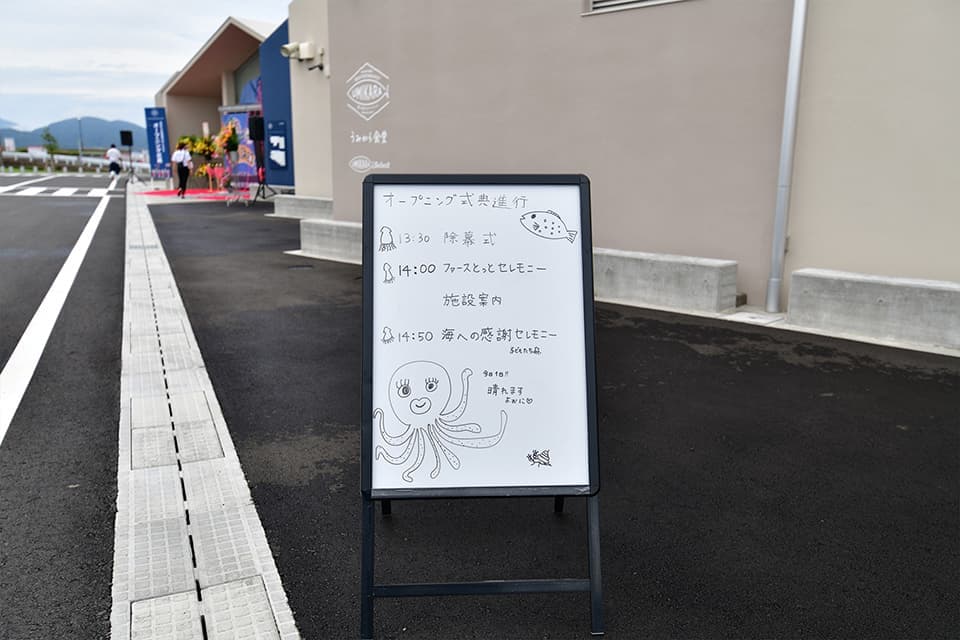 オープニング式
UMIKARA
うみから食堂
UMIKARA Select
オープニング式典進行
13:30 除幕式
14:00 ファーストとっとセレモニー
施設案内
14:50 海への感謝セレモニー
子どもたち
今日1日!!
晴れます
ように♡